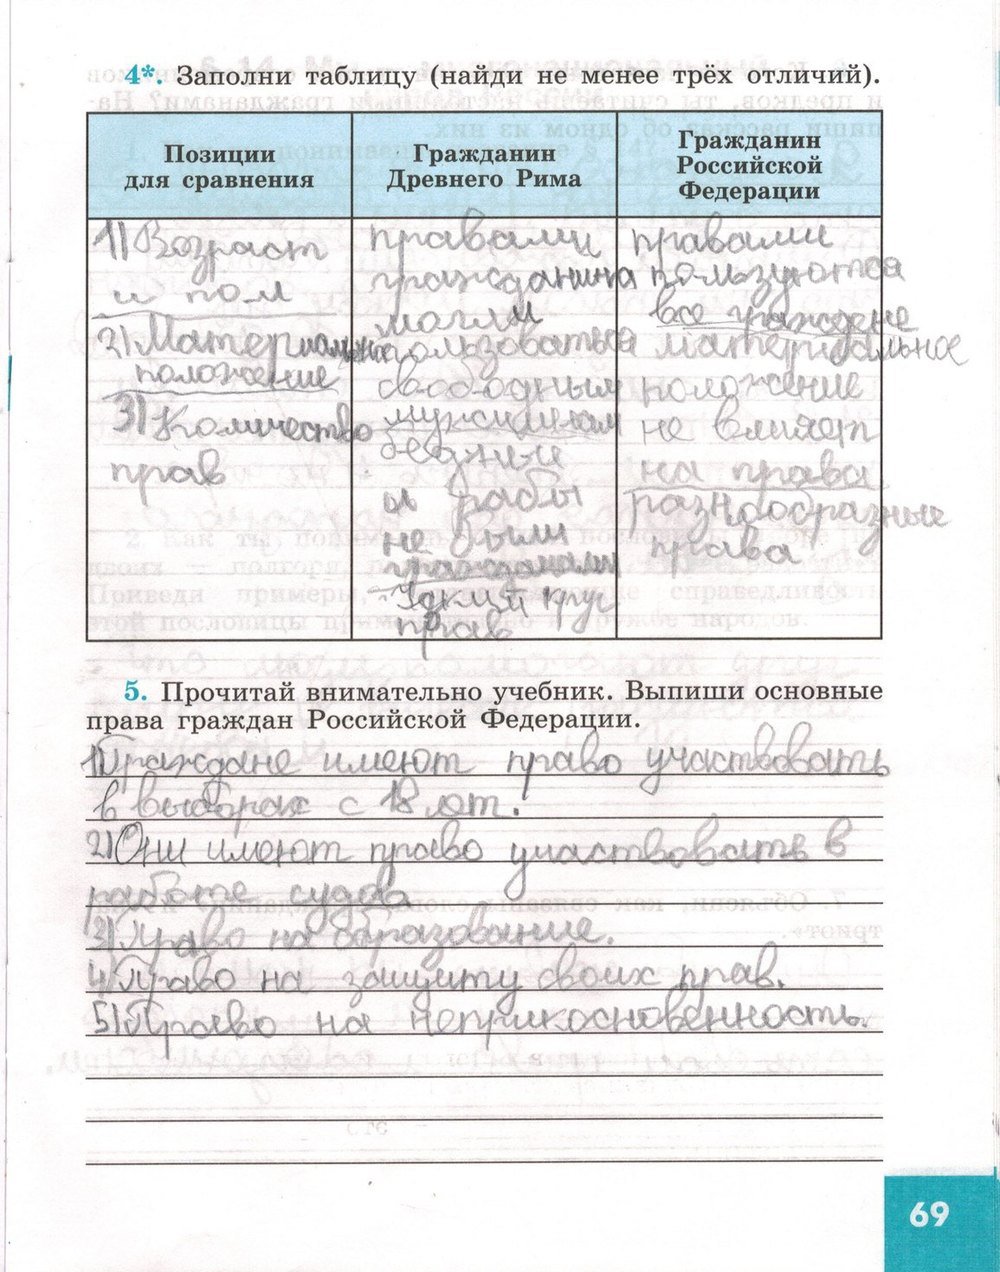 4*. Заполни таблицу (найди не менее трёх отличий).
Позиции
для сравнения
Гражданин
Древнего Рима
Гражданин
Российской
Федерации
1) Возраст
и пол
2) Материальное
положение
3) Количество
прав
правами
гражданина
могли
пользоваться
свободным
мужчинам
бедные
и рабы
не были
гражданами
Узкий круг
прав
правами
пользуются
все граждане
материальное
положение
не влияет
на права
разнообразные
права
5. Прочитай внимательно учебник. Выпиши основные
права граждан Российской Федерации.
1) Граждане имеют право участвовать
в выборах с 18 лет.
2) Они имеют право участвовать в
работе судов
3) Право на образование.
4) Право на защиту своих прав.
5) Право на неприкосновенность.
69